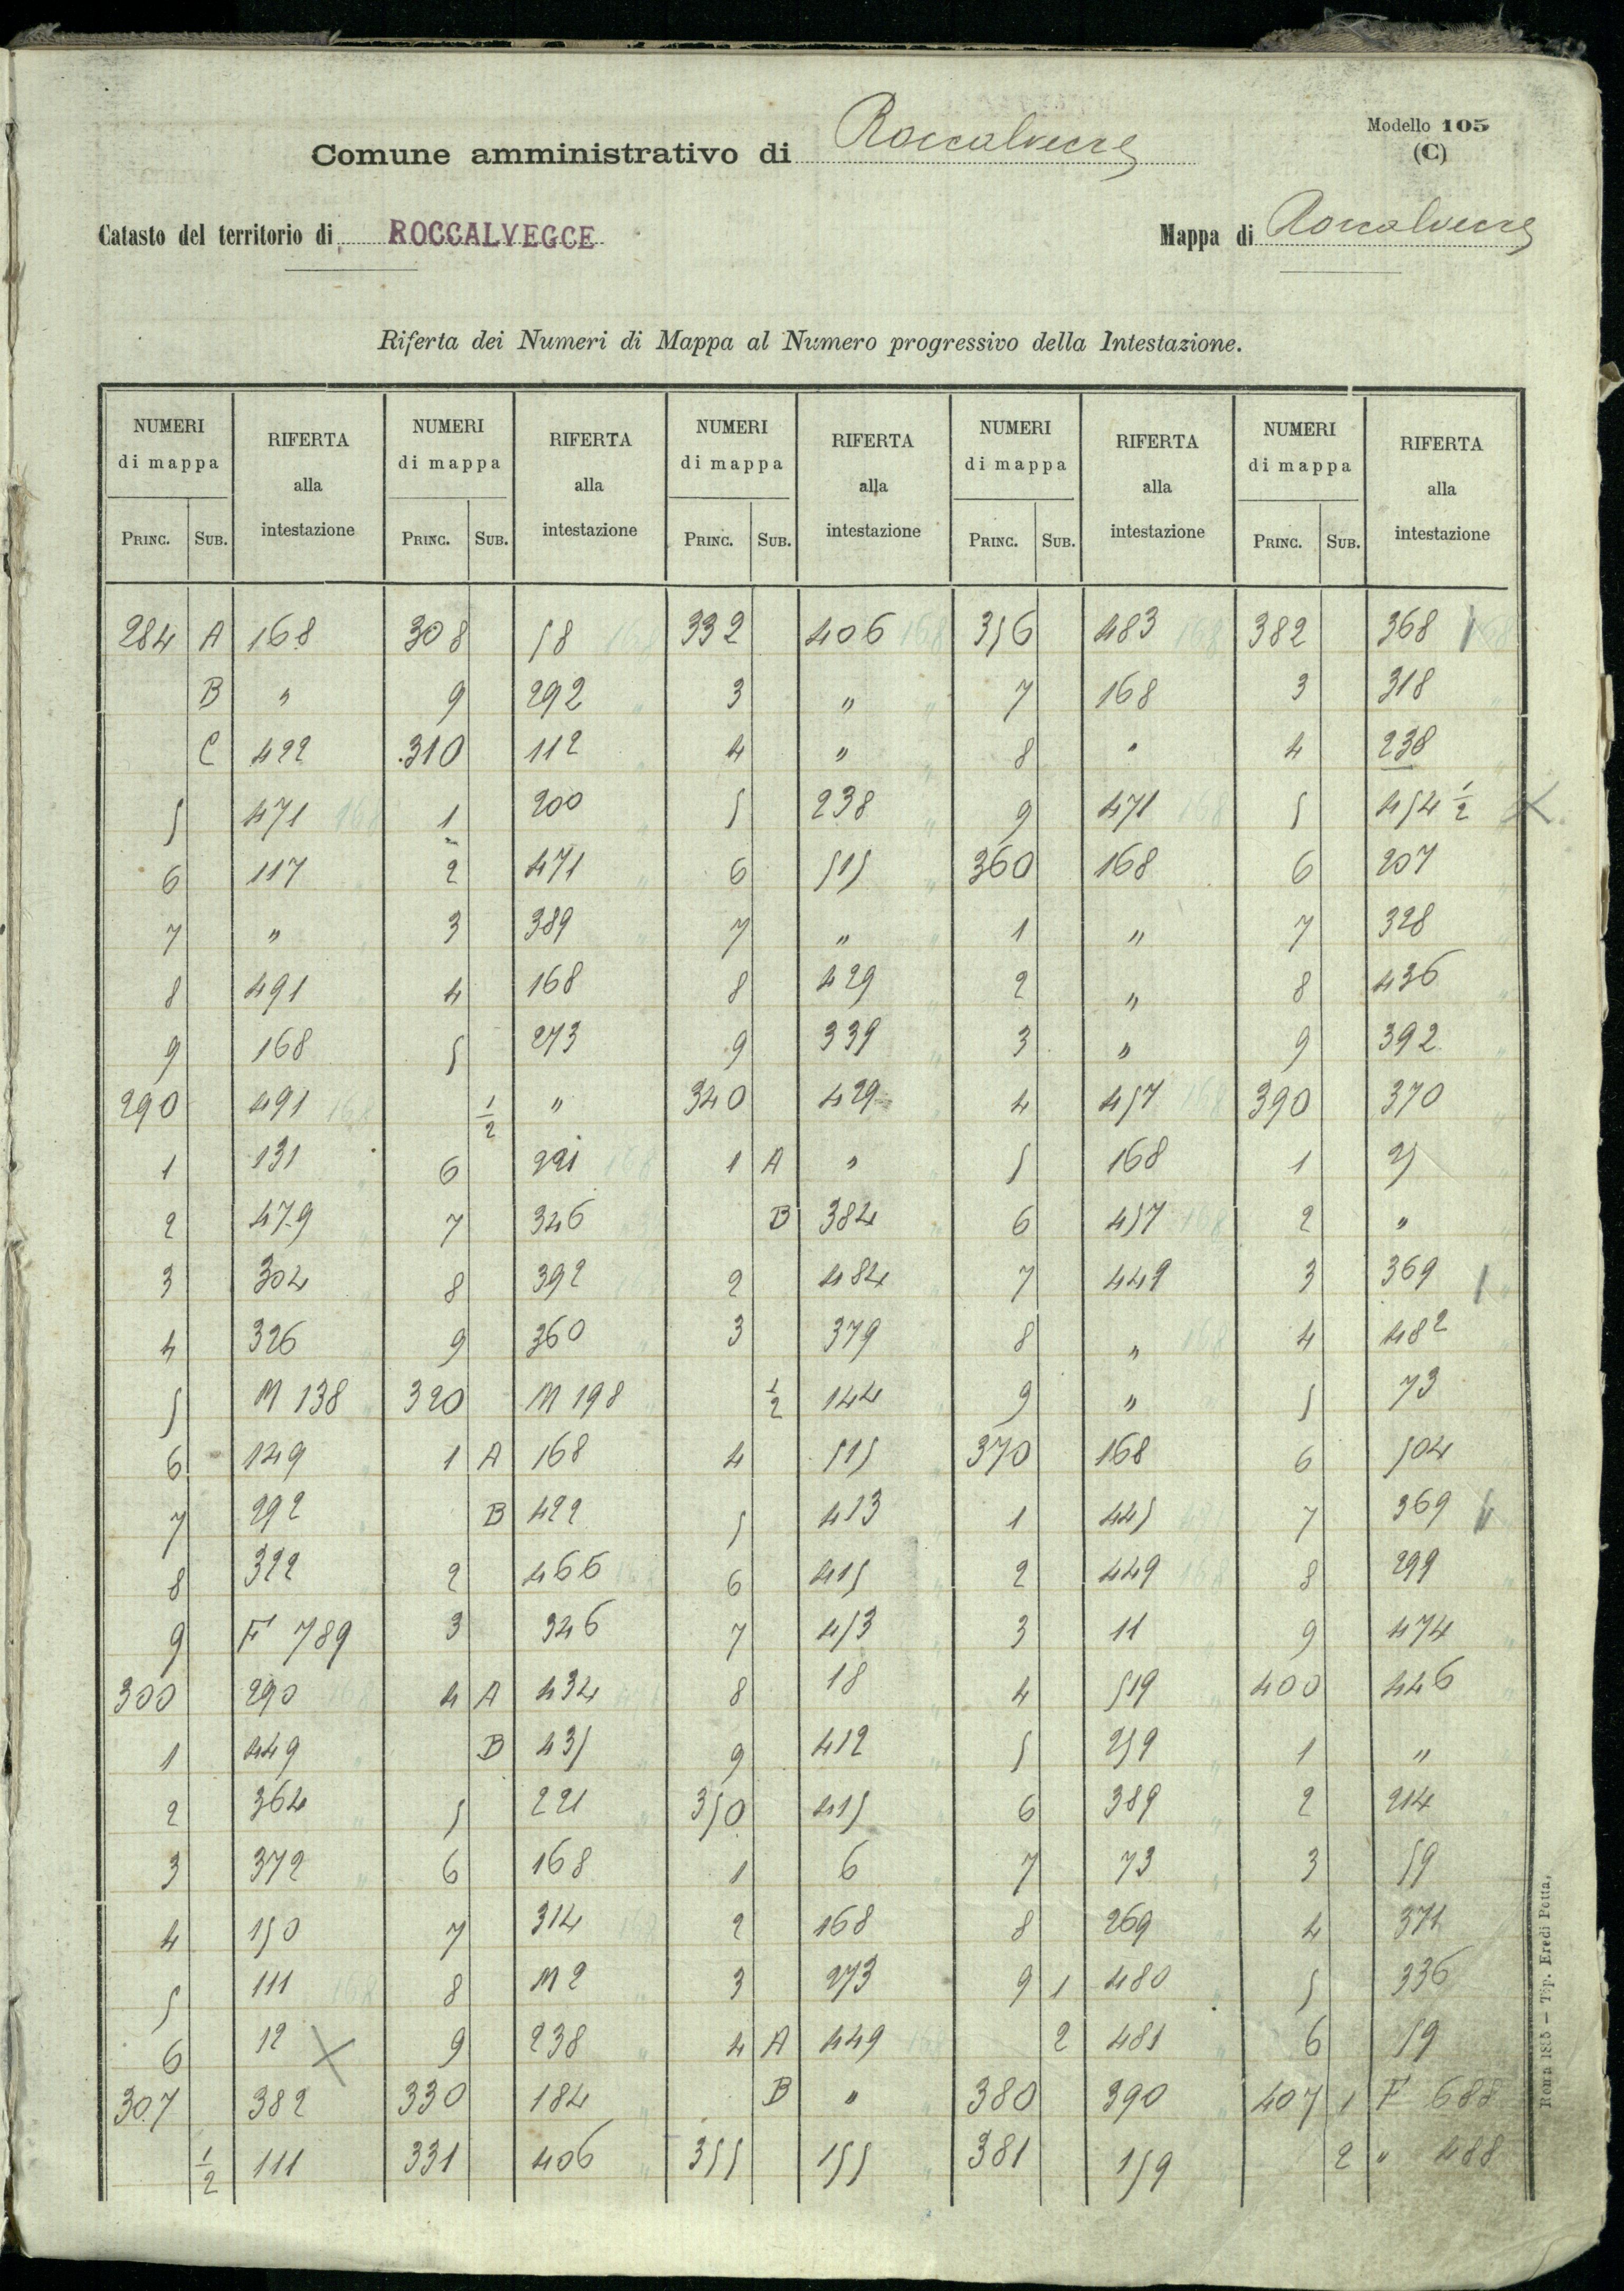 Modello 105
(C)
Comune amministrativo di Roccalvecce
Catasto del territorio di ROCCALVECCE Mappa di Roccalvecce
Riferta dei Numeri di Mappa al Numero progressivo della Intestazione.
NUMERI di mappa RIFERTA alla intestazione NUMERI di mappa RIFERTA alla intestazione NUMERI di mappa RIFERTA alla intestazione NUMERI di mappa RIFERTA alla intestazione NUMERI di mappa RIFERTA alla intestazione
PRINC. SUB. PRINC. SUB. PRINC. SUB. PRINC. SUB. PRINC. SUB.
284 A 168 308 58 332 406 356 483 382 368
B " 9 292 3 " 7 168 3 318
C 422 310 112 4 " 8 " 4 238
5 471 1 200 5 238 9 471 5 454 1/2
6 117 2 471 6 515 360 168 6 207
7 " 3 389 7 " 1 " 7 328
8 491 4 168 8 429 2 " 8 436
9 168 5 273 9 339 3 " 9 392
290 491 1/2 " 340 429 4 457 390 370
1 131 6 221 1 A " 5 168 1 25
2 479 7 346 B 384 6 457 2 "
3 304 8 392 2 484 7 449 3 369
4 326 9 360 3 379 8 " 4 482
5 M 138 320 M 198 1/2 144 9 " 5 73
6 149 1 A 168 4 515 370 168 6 504
7 292 B 422 5 413 1 445 7 369
8 322 2 466 6 415 2 449 8 299
9 F 789 3 346 7 453 3 11 9 474
300 290 4 A 434 8 18 4 519 400 446
1 449 B 435 9 412 5 259 1 "
2 364 5 221 350 415 6 389 2 214
3 372 6 168 1 6 7 73 3 59
4 150 7 314 2 168 8 269 4 371
5 111 8 M 2 3 273 9 1 480 5 336
6 12 9 238 4 A 449 2 481 6 59
307 382 330 184 B " 380 390 407 1 F 688
1/2 111 331 406 355 155 381 159 2 " 488
Tip. Eredi Botta,